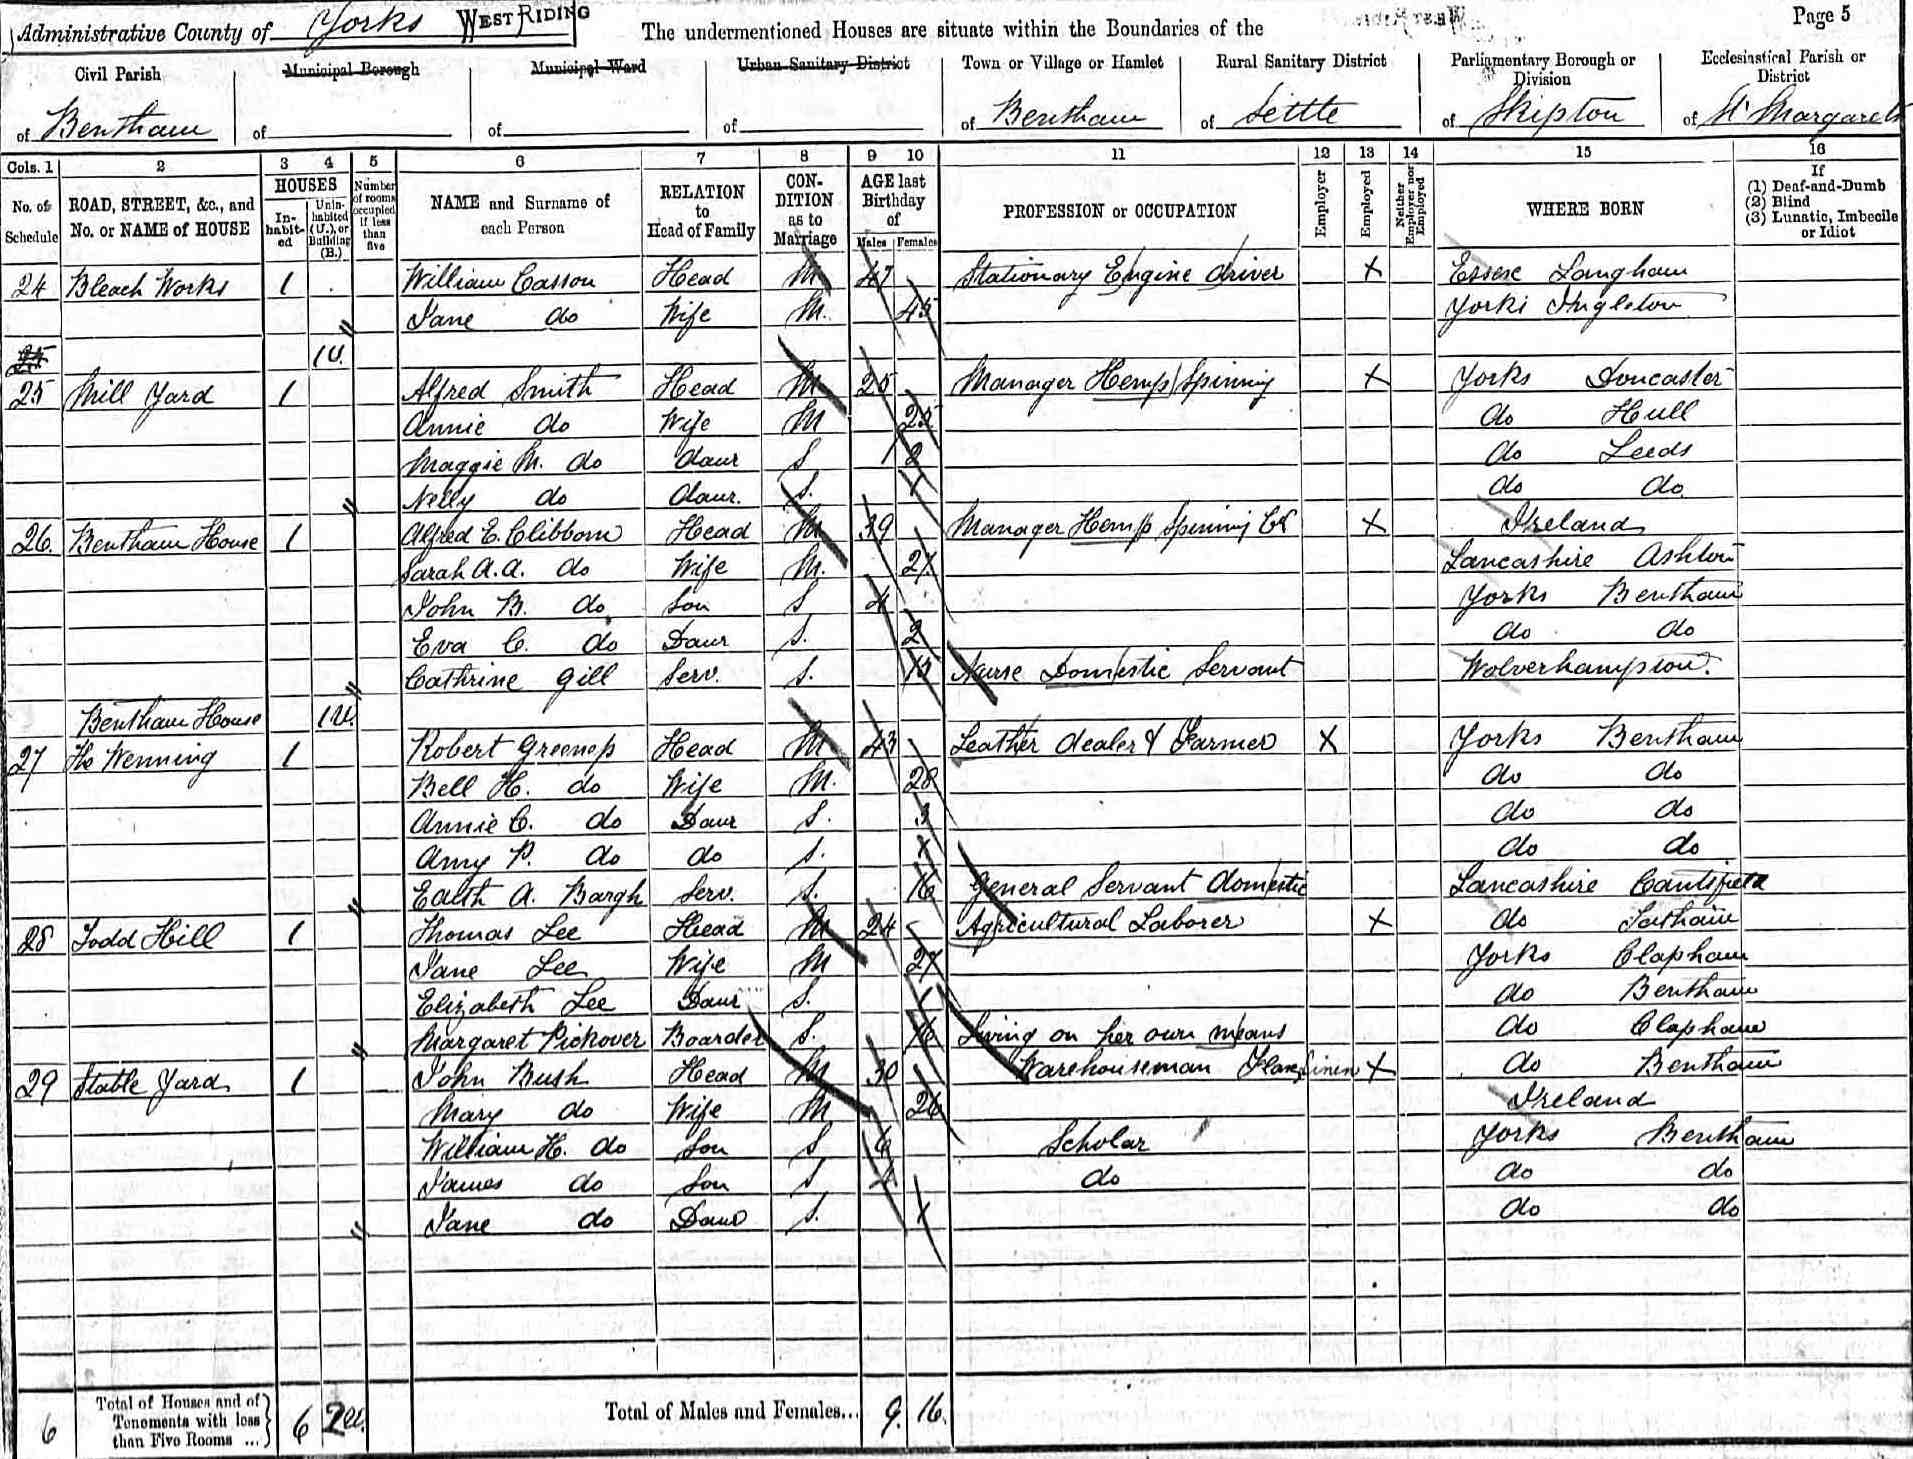 Administrative County of Yorks WEST RIDING The undermentioned Houses are situate within the Boundaries of the Page 5
Civil Parish Municipal Borough Municipal Ward Urban Sanitary District Town or Village or Hamlet Rural Sanitary District Parliamentary Borough or Division Ecclesiastical Parish or District
of Bentham of of of of Bentham of Settle of Skipton of St Margarets
Cols. 1 2 3 4 5 6 7 8 9 10 11 12 13 14 15 16
No. of Schedule ROAD, STREET, &c., and No. or NAME of HOUSE HOUSES Inhabited Uninhabited (U.), or Building (B.) Number of rooms occupied if less than five NAME and Surname of each Person RELATION to Head of Family CONDITION as to Marriage AGE last Birthday of Males Females PROFESSION or OCCUPATION Employer Employed Neither Employer nor Employed WHERE BORN If (1) Deaf-and-Dumb (2) Blind (3) Lunatic, Imbecile or Idiot
24 Bleach Works 1 William Casson Head M 47 Stationary Engine driver X Essex Langham
Jane do Wife M. 45 Yorks Ingleton
25 1 U.
25 Mill Yard 1 Alfred Smith Head M 25 Manager Hemp Spinning X Yorks Doncaster
Annie do Wife M 25 do Hull
Maggie M. do daur S 2 do Leeds
Nelly do daur. S. do do
26. Bentham House 1 Alfred E. Clibborn Head M 39 Manager Hemp Spinning X Ireland
Sarah A. A. do Wife M. 27 Lancashire Ashton
John B. do Son S 4 Yorks Bentham
Eva C. do Daur S. 2 do do
Cathrine Gill Serv. S. Nurse Domestic Servant Wolverhampton.
Bentham House 1 U.
27 Ho Wenning 1 Robert Greenep Head M 43 Leather dealer & Farmer X Yorks Bentham
Bell H. do Wife M. 28 do do
Annie C. do Daur S. 3 do do
Amy P. do do S. do do
Edith A. Bargh Serv. S. 16 General Servant domestic Lancashire Cantsfield
28 Todd Hill 1 Thomas Lee Head M 24 Agricultural Laborer X do Tatham
Jane Lee Wife M 27 Yorks Clapham
Elizabeth Lee Daur S. do Bentham
Margaret Pickover Boarder S. 16 Living on her own means do Clapham
29 Stable Yard 1 John Bush Head M 30 Warehouseman Linen X do Bentham
Mary do Wife M 26 Ireland
William H. do Son S 6 Scholar Yorks Bentham
James do Son S 4 do do do
Jane do Daur S. do do
6 Total of Houses and of Tenements with less than Five Rooms ... 6 2 U. Total of Males and Females... 9. 16.